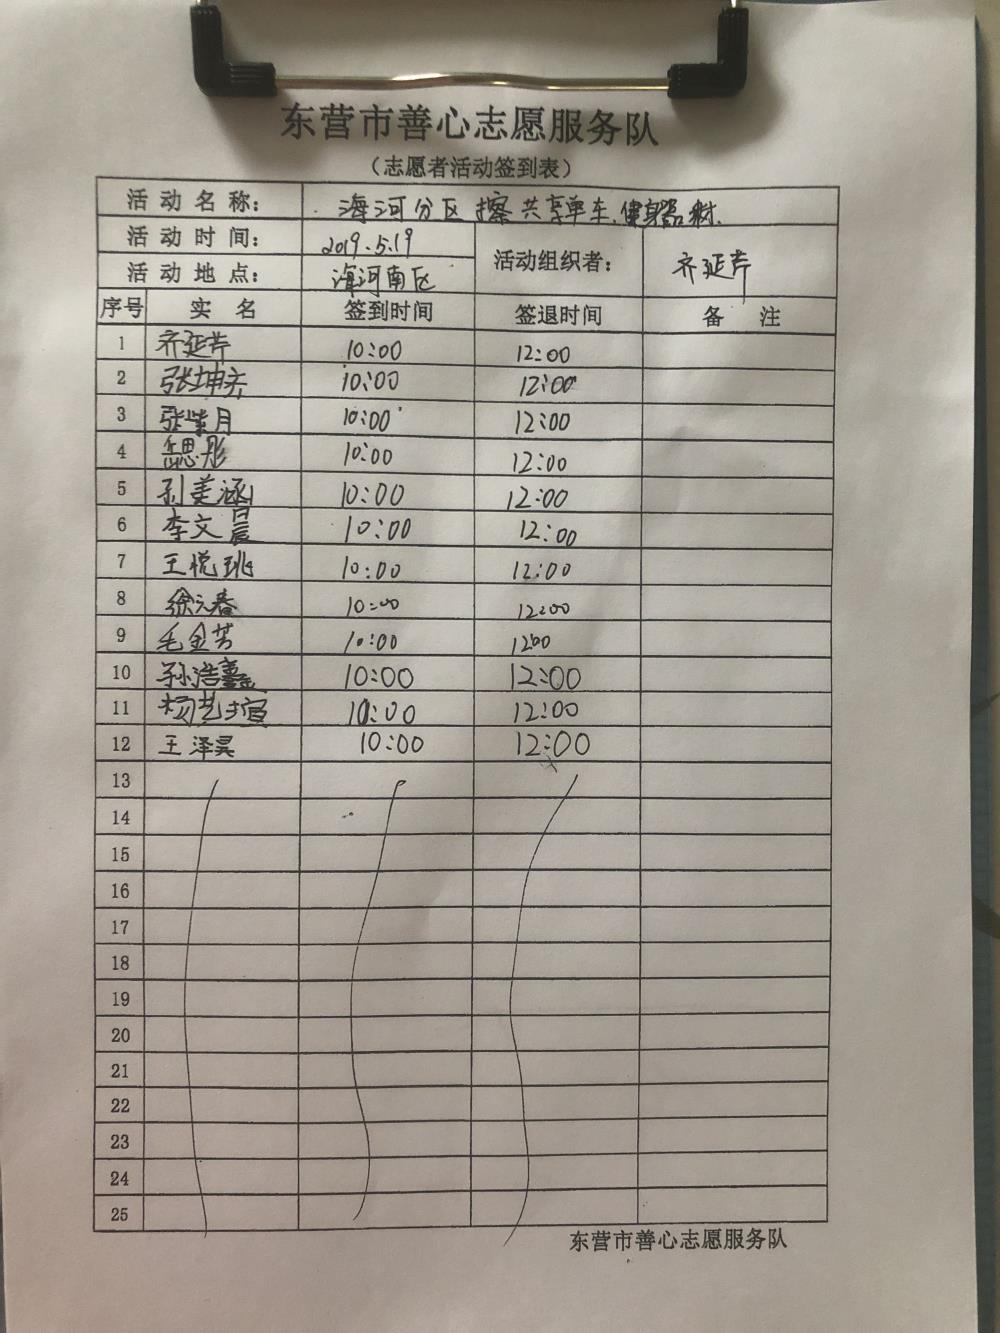 东营市善心志愿服务队
（志愿者活动签到表）
活动名称： 海河分区 擦 共享单车、健身器材.
活动时间： 2019.5.19 活动组织者： 齐延芹
活动地点： 海河南区
序号 实名 签到时间 签退时间 备注
1 齐延芹 10:00 12:00
2 张坤 10:00 12:00
3 张 月 10:00 12:00
4 思彤 10:00 12:00
5 孙美涵 10:00 12:00
6 李文晨 10:00 12:00
7 王悦 10:00 12:00
8 徐元春 10:00 12:00
9 毛金芳 10:00 12:00
10 孙浩鑫 10:00 12:00
11 杨艺瑄 10:00 12:00
12 王泽昊 10:00 12:00
13
14
15
16
17
18
19
20
21
22
23
24
25
东营市善心志愿服务队